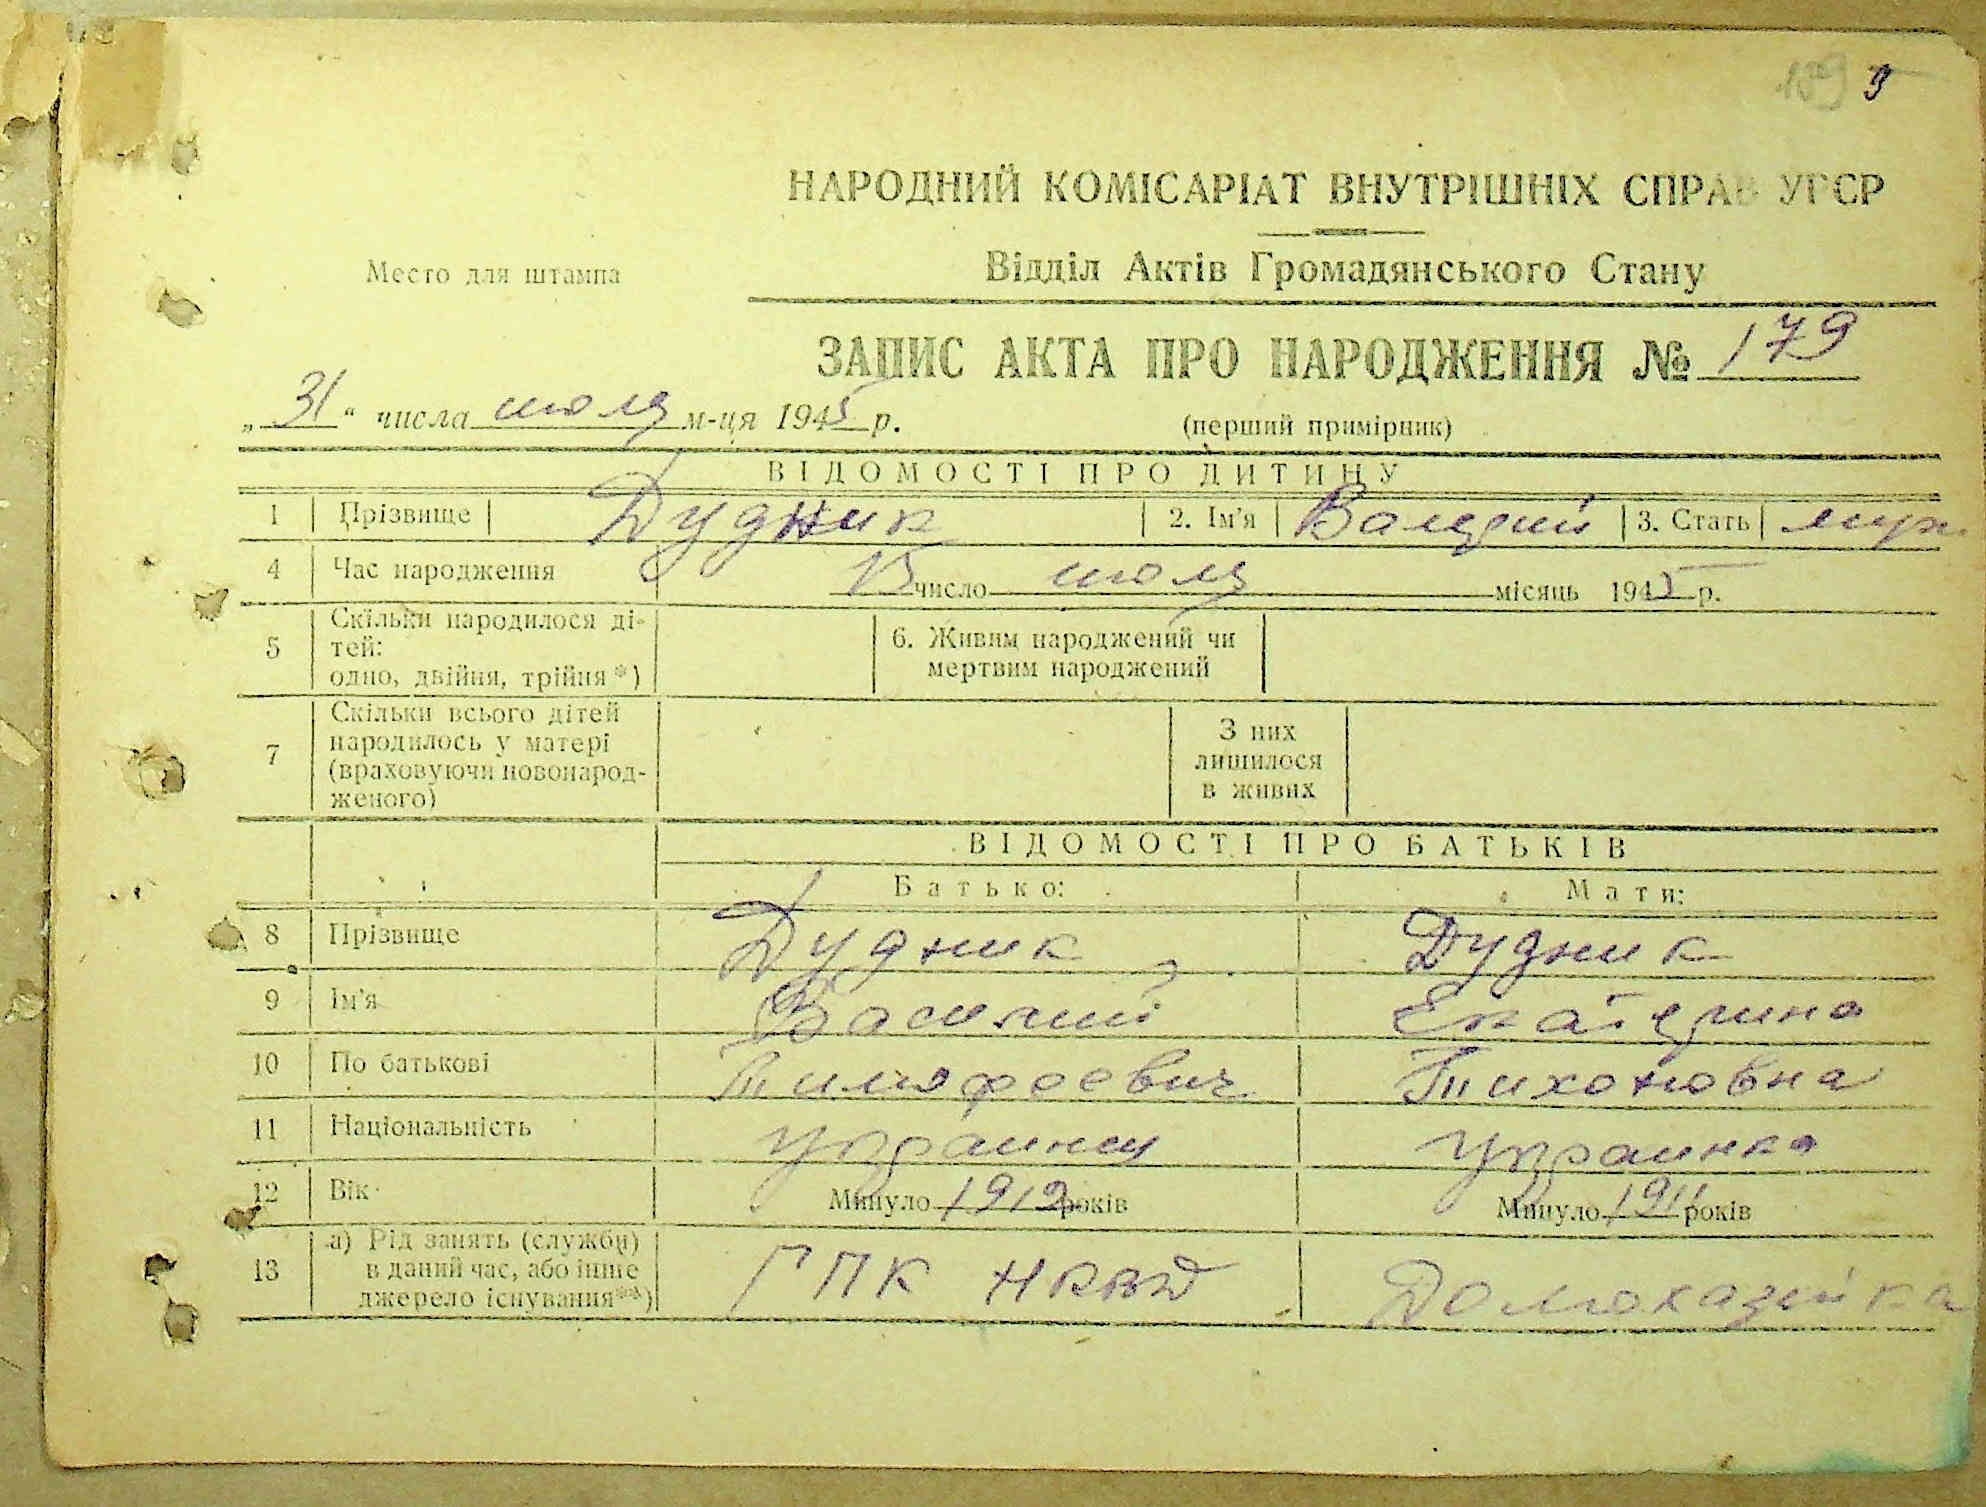 9
НАРОДНИЙ КОМІСАРІАТ ВНУТРІШНІХ СПРАВ УРСР
Место для штампа
Відділ Актів Громадянського Стану
ЗАПИС АКТА ПРО НАРОДЖЕННЯ № 179
„31“ числа июля м-ця 1945 р. (перший примірник)
ВІДОМОСТІ ПРО ДИТИНУ
1 Прізвище Дудник 2. Ім'я Валерий 3. Стать муж
4 Час народження 13 число июля місяць 1945 р.
5 Скільки народилося ді-
тей:
одно, двійня, трійня *)
6. Живим народжений чи
мертвим народжений
7 Скільки всього дітей
народилось у матері
(враховуючи новонарод-
женого)
З них
лишилося
в живих
ВІДОМОСТІ ПРО БАТЬКІВ
Батько: Мати:
8 Прізвище Дудник Дудник
9 Ім'я Василий Екатерина
10 По батькові Тимофеевич Тихоновна
11 Національність украинец украинка
12 Вік Минуло 1912 років Минуло 1911 років
13 а) Рід занять (служби)
в даний час, або інше
джерело існування**)
ГПК НКВД Домохазяйка